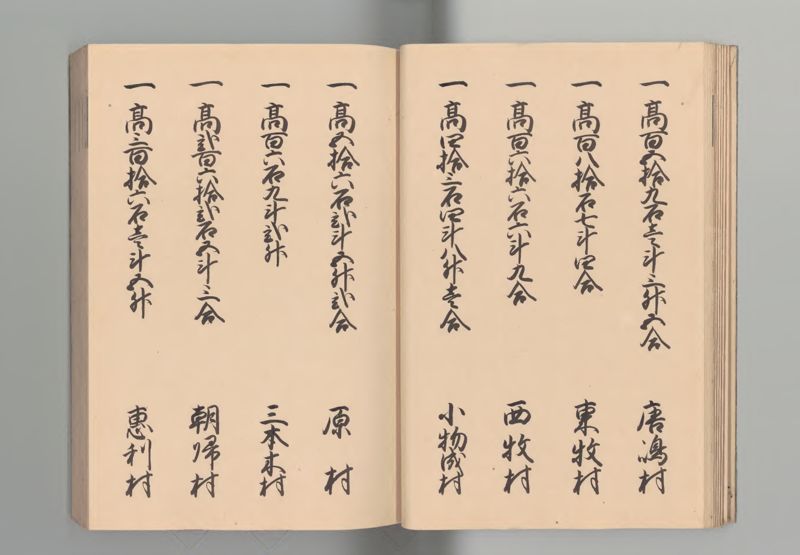 一高百五拾九石壱斗三升五合 唐嶋村
一高百八拾石七斗四合 東牧村
一高百六拾六石六斗九合 西牧村
一高四拾三石四斗八升壱合 小物成村
一高五拾六石弐斗五升弐合 原村
一高百六石九斗弐升 三本木村
一高弐百六拾弐石五斗三合 朝帰村
一高三百拾六石壱斗五升 恵利村